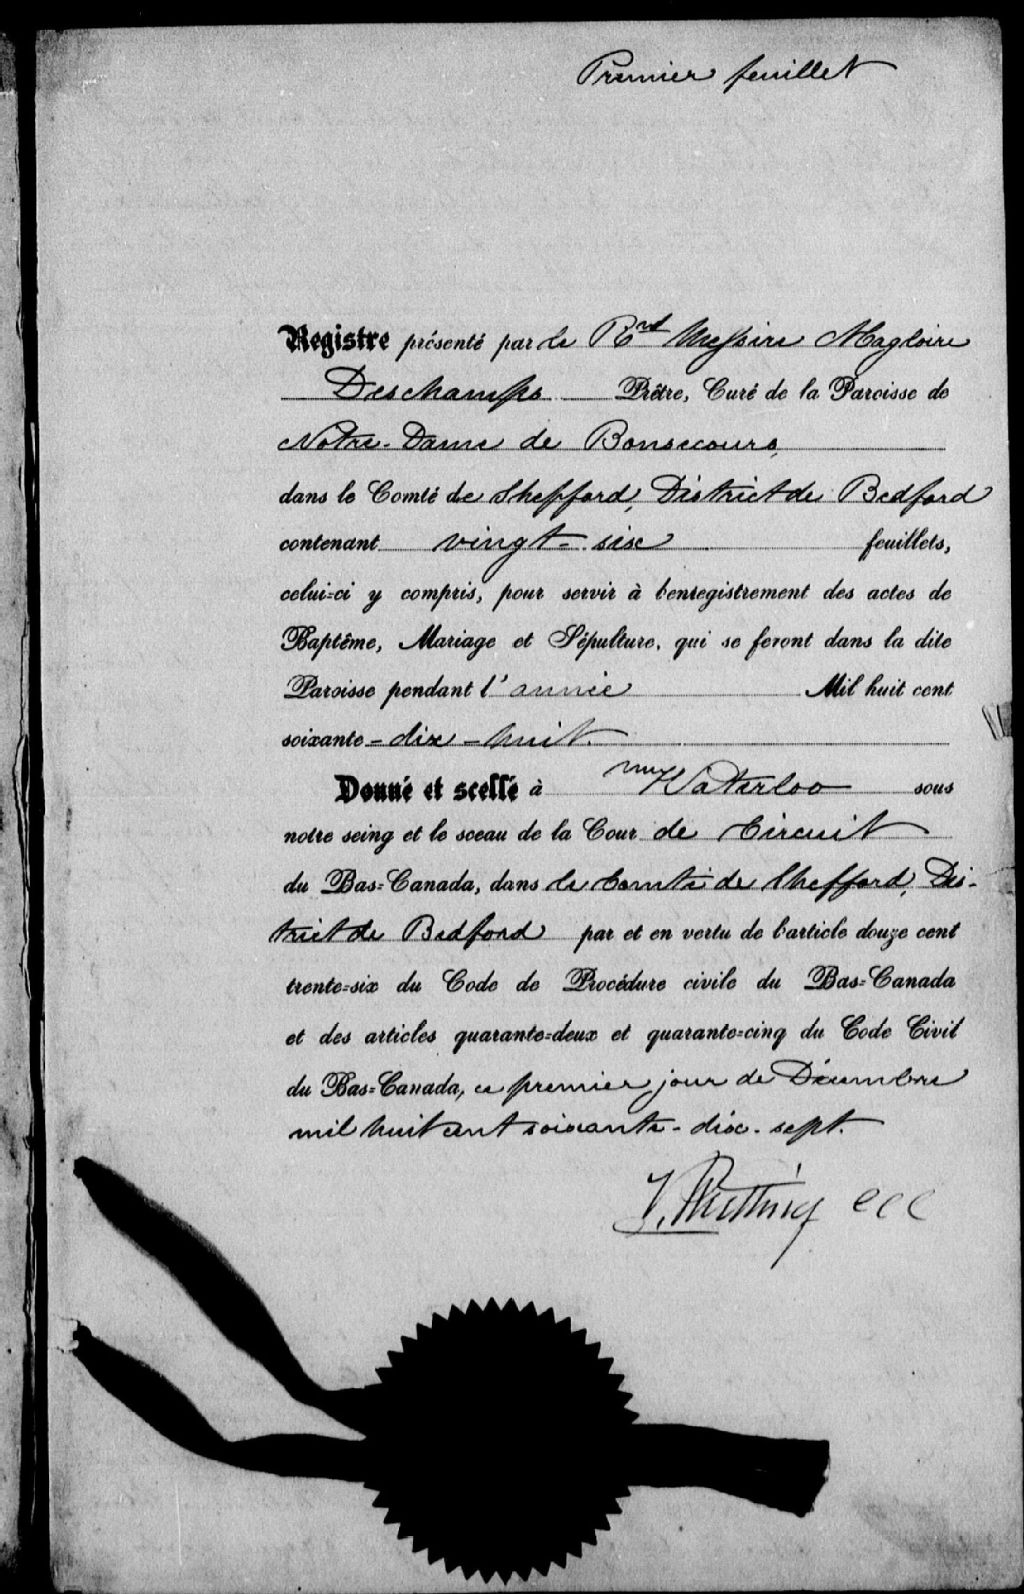 Premier feuillet
Registre présenté par le Rnd Messire Magloire
Deschamps Prêtre, Curé de la Paroisse de
Notre-Dame de Bonsecours,
dans le Comté de Shefford, District de Bedford
contenant vingt-six feuillets,
celui-ci y compris, pour servir à l'enregistrement des actes de
Baptême, Mariage et Sépulture, qui se feront dans la dite
Paroisse pendant l'année Mil huit cent
soixante-dix-huit.
Donné et scellé à Waterloo sous
notre seing et le sceau de la Cour de Circuit
du Bas-Canada, dans le Comté de Shefford, Dis-
trict de Bedford par et en vertu de l'article douze cent
trente-six du Code de Procédure civile du Bas-Canada
et des articles quarante-deux et quarante-cinq du Code Civil
du Bas-Canada, ce premier jour de Décembre
mil huit cent soixante-dix-sept.
CCC